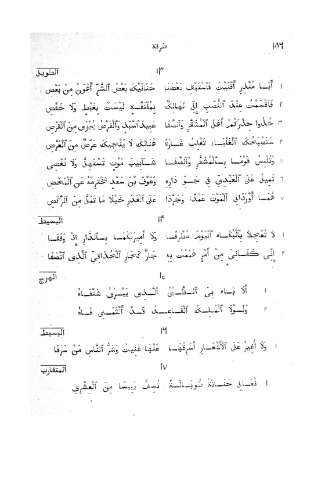 طرفة ١٨٦
١٣ الطويل
١ أَبَا مُنْذِرٍ أَفْنَيْتَ فَاسْتَبْقِ بَعْضَنَا حَنَانَيْكَ بَعْضُ الشَّرِّ أَهْوَنُ مِنْ بَعْضِ
٢ فَأَقْسَمْتُ عِنْدَ النُّصْبِ إِنِّي لَهَالِكٌ بِمُلْتَفَّةٍ لَيْسَتْ بِغَبْطٍ وَلَا خَفْضِ
٣ خُذُوا حِذْرَكُمْ أَهْلَ الْمُشَقَّرِ وَالصَّفَا عَبِيدَ اسْبَذٍ وَالْقَرْضُ يُجْزَى مِنَ الْقَرْضِ
٤ سَتَصْبَحُكَ الْغَلْبَاءُ تَغْلِبُ غَارَةً هُنَالِكَ لَا يُنْجِيكَ عَرْضٌ مِنَ الْعَرْضِ
٥ وَتُلْبِسُ قَوْمًا بِالْمُشَقَّرِ وَالصَّفَا شَآبِيبَ مَوْتٍ تَسْتَهِلُّ وَلَا تُغْضِي
٦ تَمِيلُ عَلَى الْعَبْدِيِّ فِي جَوِّ دَارِهِ وَعَوْفَ بْنَ سَعْدٍ تَخْتَرِمْهُ عَنِ الْمَحْضِ
٧ هُمَا أَوْرَدَانِي الْمَوْتَ عَمْدًا وَجَرَّدَا عَلَى الْغَدْرِ خَيْلًا مَا تَمَلُّ مِنَ الرَّكْضِ
١٤ البسيط
١ لَا تُعْجِلَا بِالْبُكَاءِ الْيَوْمَ مُطَّرِفًا وَلَا أَمِيرَيْكُمَا بِالدَّارِ إِذْ وَقَفَا
٢ إِنِّي كَفَانِيَ مِنْ أَمْرٍ هَمَمْتُ بِهِ جَارٌ كَجَارِ الْحُذَاقِيِّ الَّذِي اتَّصَفَا
١٥ الهزج
١ أَلَا يَا بِأَبِي الظَّبْيُ الَّذِي يَبْرُقُ شَنْفَاهُ
٢ وَلَوْلَا الْمَلِكُ الْقَاعِدُ قَدْ أَلْثَمَنِي فَاهُ
١٦ البسيط
١ وَلَا أُغِيرُ عَلَى الْأَشْعَارِ أَسْرِقُهَا عَنْهَا غَنِيتُ وَشَرُّ النَّاسِ مَنْ سَرَقَا
١٧ المتقارب
١ نَعَانِي حَنَانَةُ طُوبَالَةً تَسَفُّ يَبِيسًا مِنَ الْعِشْرِقِ